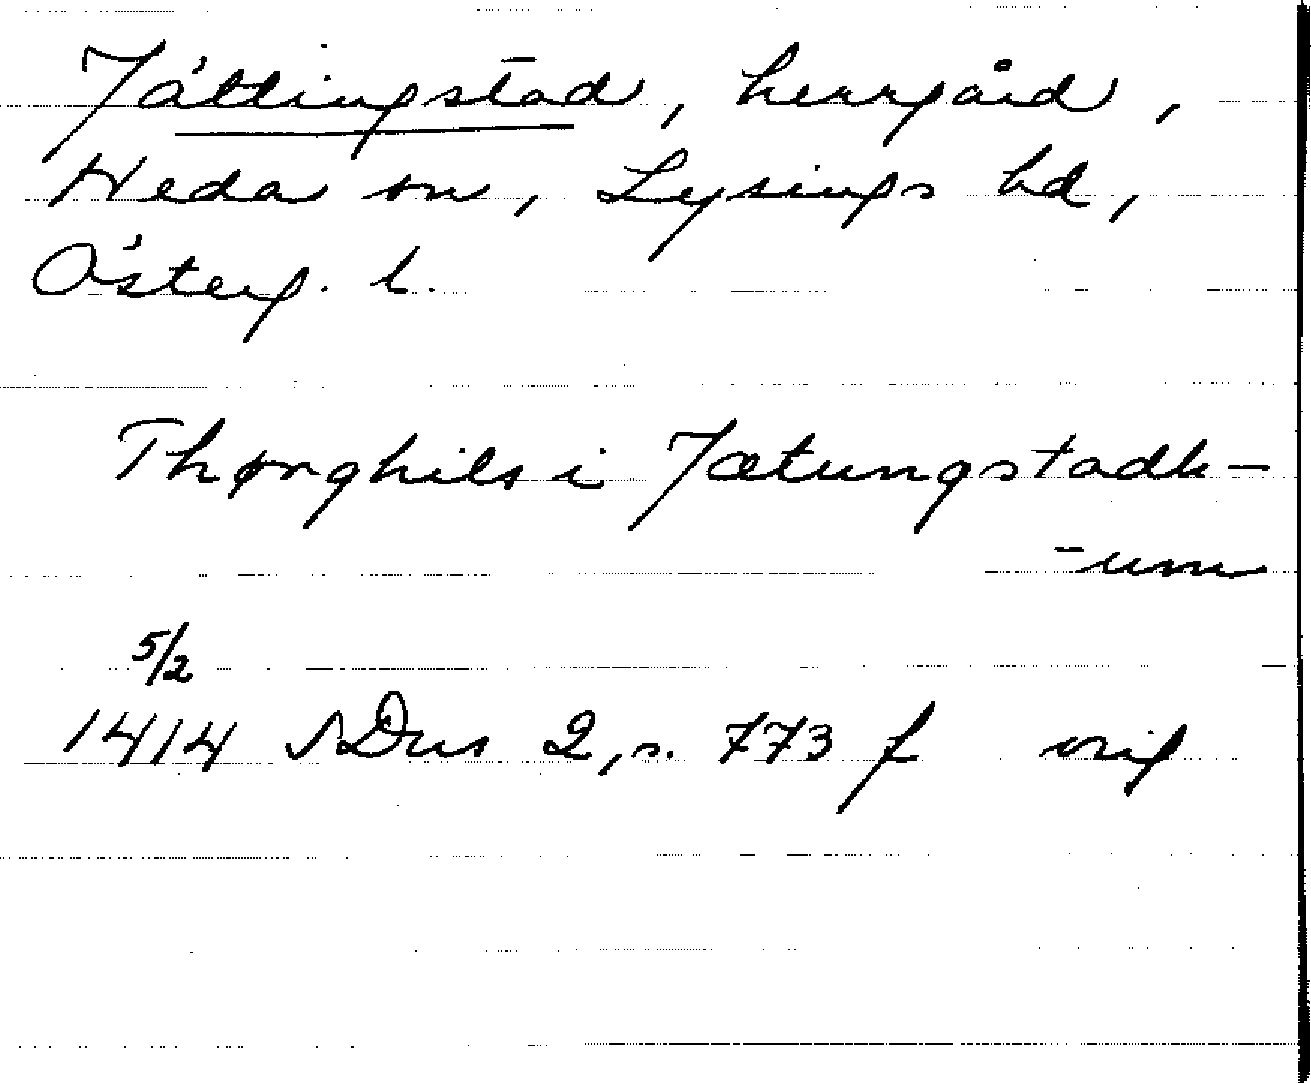 Jättingstad, herrgård,
Heda sn, Lysings hd,
Österg. l.
Thørghils i Jætungstadh-
-um
5/2
1414 SDns 2, s. 773 f orig